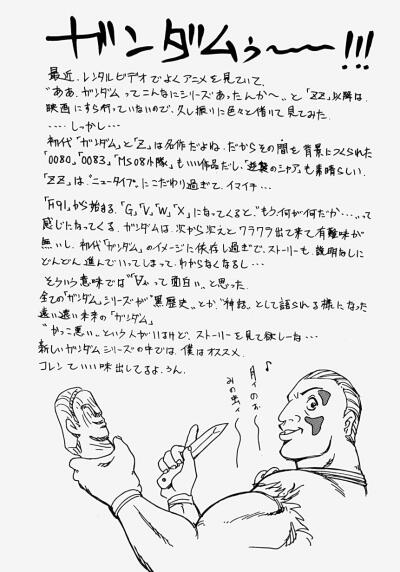 ガンダムぅ〜〜!!!
最近、レンタルビデオでよくアニメを見ていて、
"ああ、ガンダムってこんなにシリーズあったんか〜"と「ZZ」以降は、
映画にすら行っていないので、久し振りに色々と借りて見てみた。
‥‥しっかし…
初代「ガンダム」と「Z」は名作だよね。だからその間を背景につくられた
「0080」、「0083」、「MS08小隊」もいい作品だし、「逆襲のシャア」も素晴らしい。
「ZZ」は"ニュータイプ"にこだわり過ぎて、イマイチ…
「F91」から始まる、「G」「V」「W」「X」になってくると、"もう、何が何だか…"って
感じになってくる。ガンダムは、次から次えとワラワラ出て来て有難味が
無いし、初代「ガンダム」のイメージに依存し過ぎで、ストーリーも、説明なしに
どんどん進んでいってしまって、わからなくなるし…
そういう意味では"∀"って面白い"、と思った。
全ての「ガンダム」シリーズが"黒歴史"とか"神話"として語られる様になった
遠い遠い未来の「ガンダム」
"かっこ悪い"という人がいるけど、ストーリーを見て欲しーな…
新しいガンダムシリーズの中では、僕はオススメ。
コレンていい味出してるよ。うん。
月ィのぉ♪
みの虫ィ